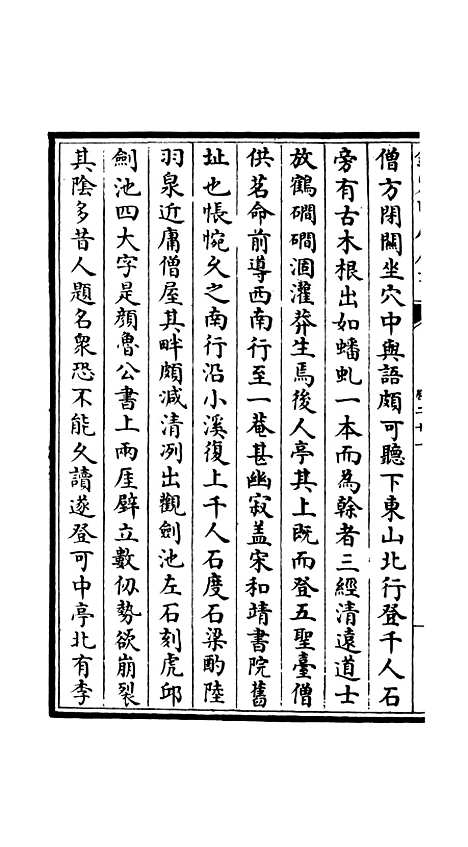 僧方閉關坐穴中與語頗可聽下東山北行登千人石
旁有古木根出如蟠虬一本而為榦者三經清遠道士
放鶴磵磵涸灌莽生焉後人亭其上既而登五聖臺僧
供茗命前導西南行至一菴甚幽寂盖宋和靖書院舊
址也悵惋久之南行沿小溪復上千人石度石梁酌陸
羽泉近庸僧屋其畔頗減清冽出觀劍池左石刻虎邱
劍池四大字是顔魯公書上兩厓壁立數仭勢欲崩裂
其陰多昔人題名衆恐不能久讀遂登可中亭北有李